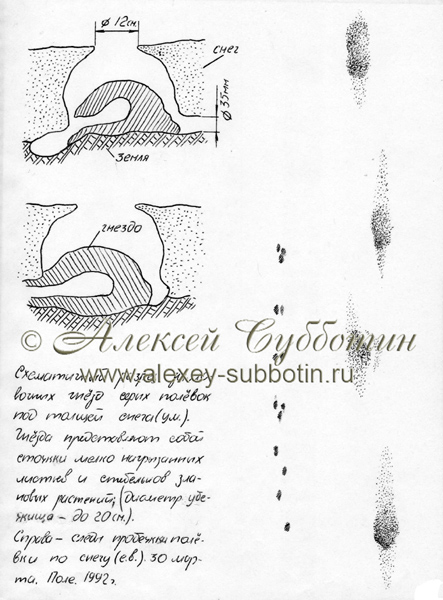 ø 12см.
снег
ø 35мм
земля
гнездо
© Алексей Субботин
www.alexey-subbotin.ru
Схематичный разрез
вочных гнёзд серых полёвок
под толщей снега (ум.).
Гнёзда представляют собой
стожки мелко нагрызанных
листков и стебельков зла-
ковых растений; (диаметр убе-
жища - до 20 см.).
Справа - следы пробежки полё-
вки по снегу (е.в.). 30 мар-
та. Поле. 1992г.